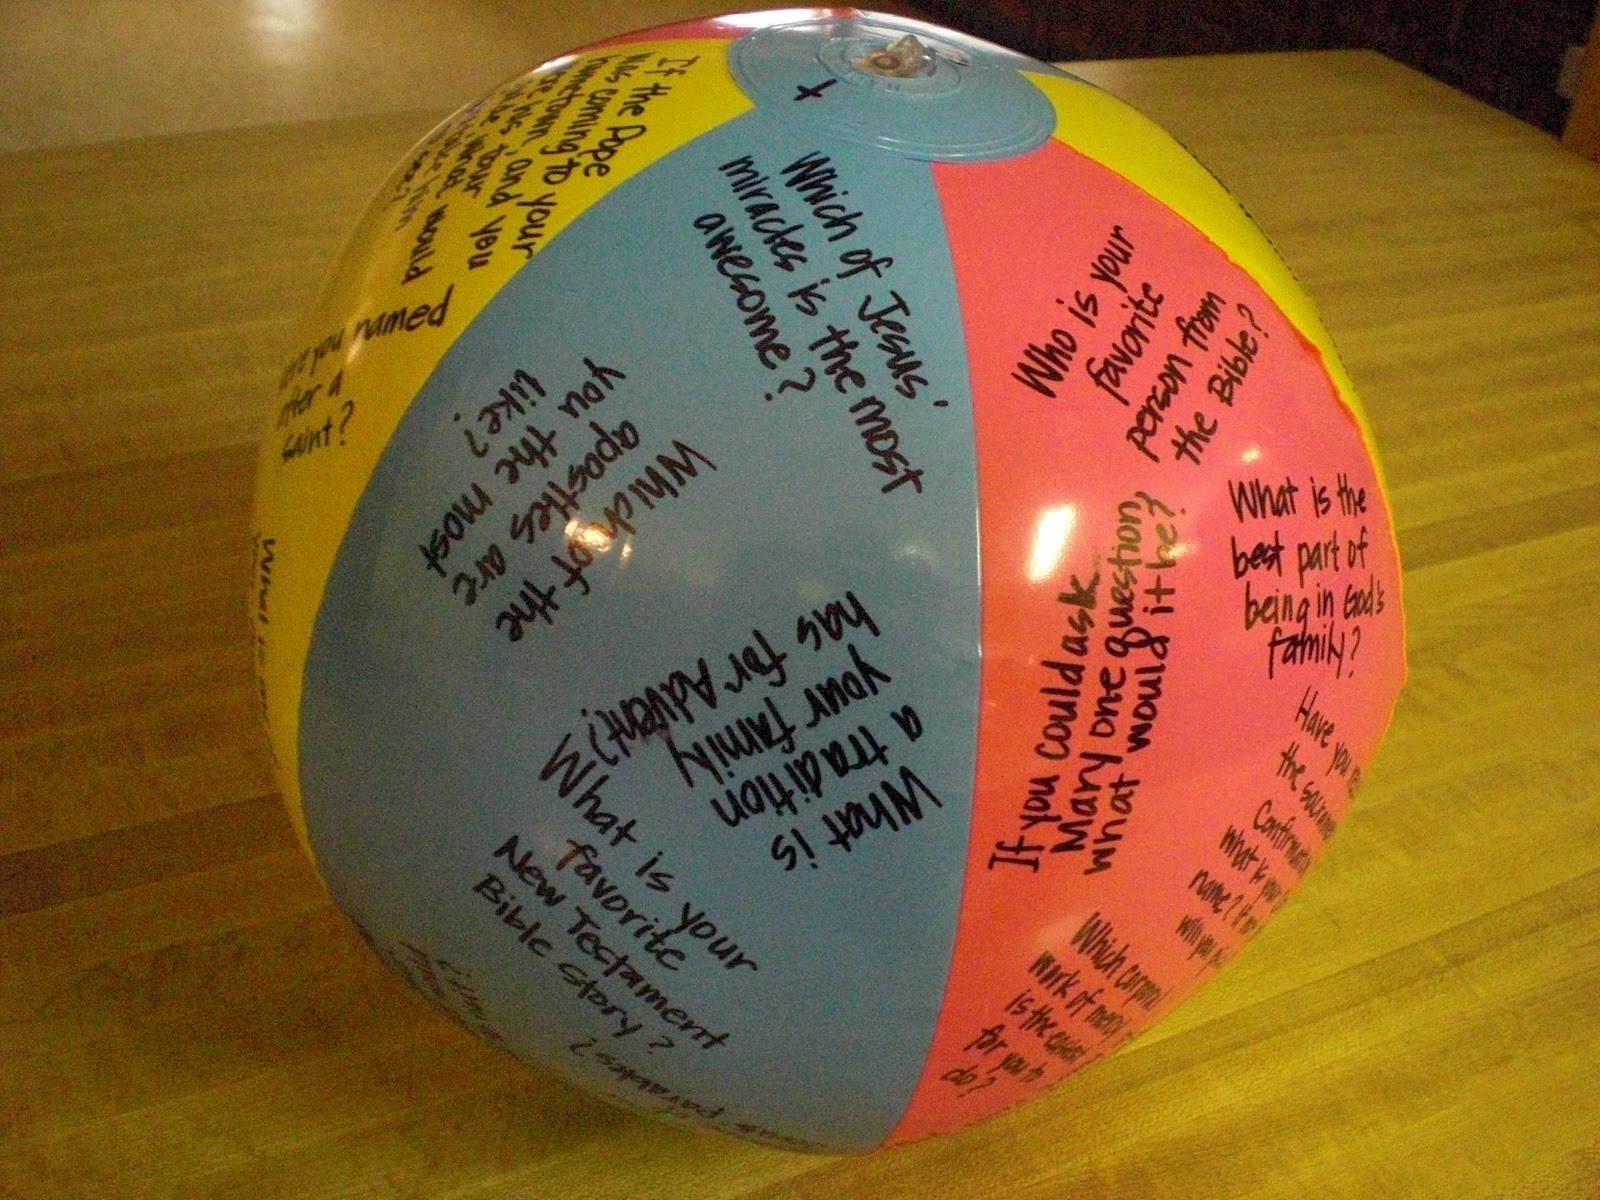 If the Pope
was coming to your
hometown and you
would
Are you named
after a
saint?
What is
Which of Jesus'
miracles is the most
awesome?
Which of the
apostles are
you the most
like?
What is
a tradition
your family
has for Advent?
What is your
favorite
New Testament
Bible story?
parables?
Who is your
favorite
person from
the Bible?
If you could ask
Mary one question,
what would it be?
What is the
best part of
being in God's
family?
Have you
the
what is your
name? If
will you
Which corporal
work of mercy
is the easiest
for you to
do?